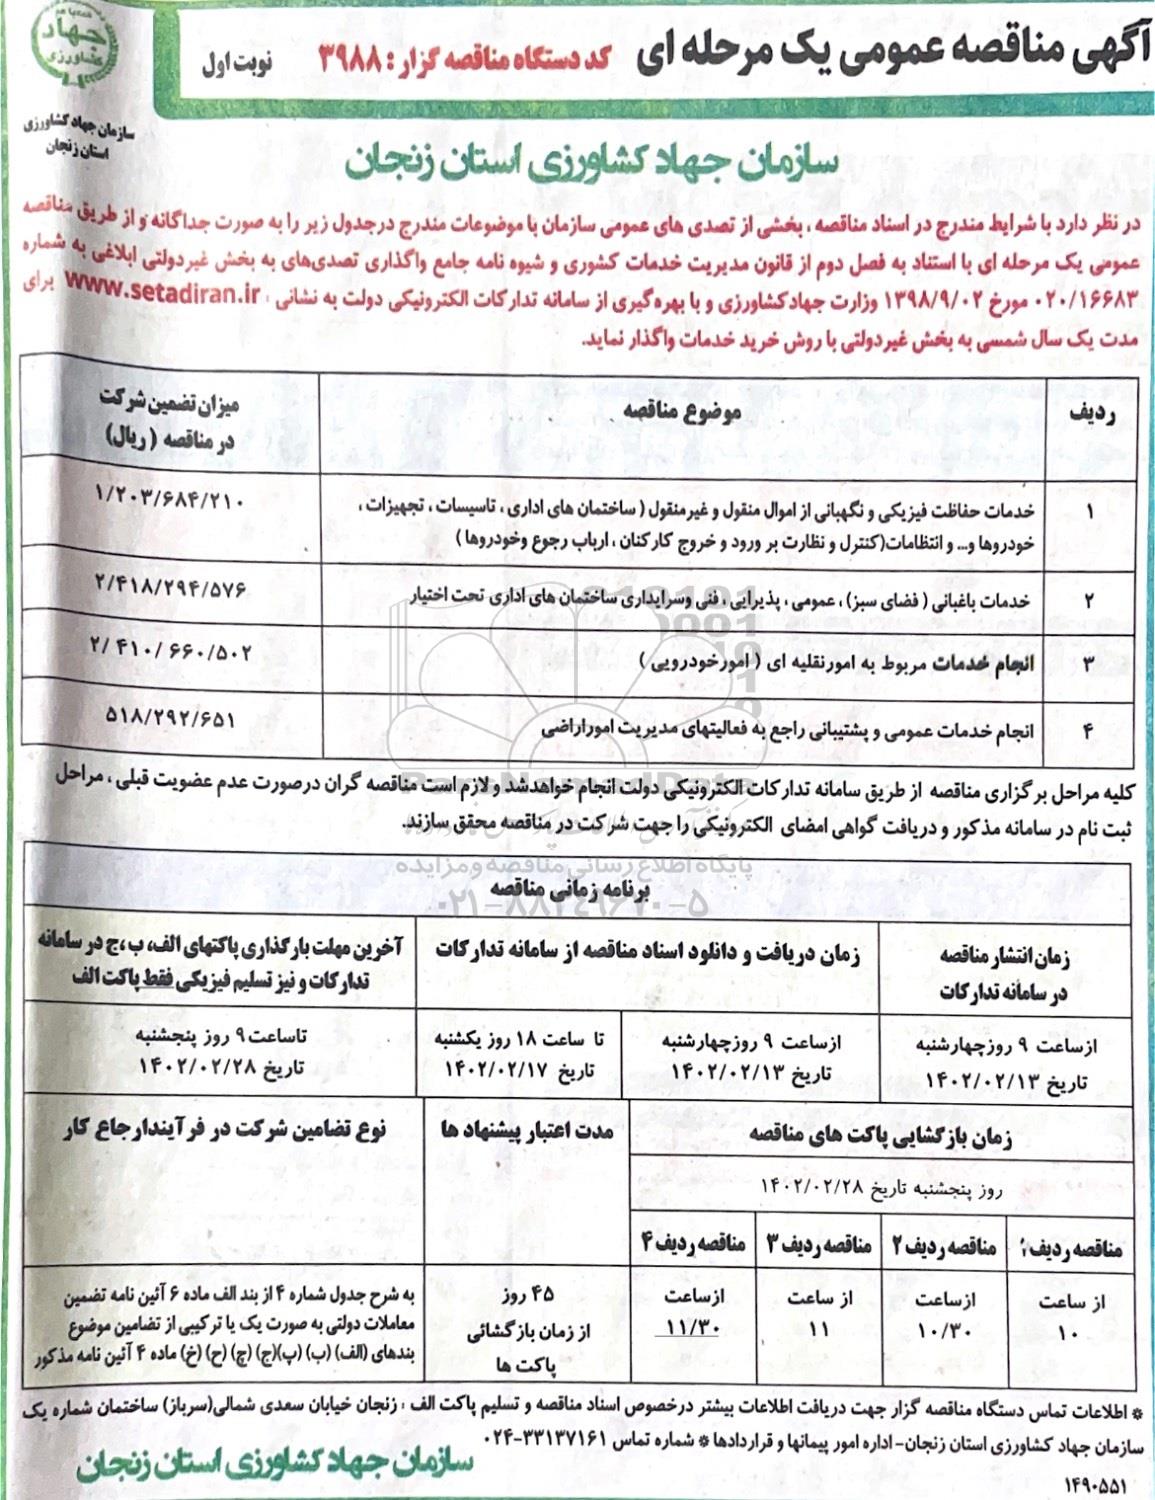 آگهی مناقصه عمومی یک مرحله ای کد دستگاه مناقصه گزار : ۳۹۸۸ نوبت اول
جهاد
کشاورزی
سازمان جهاد کشاورزی
استان زنجان
سازمان جهاد کشاورزی استان زنجان
در نظر دارد با شرایط مندرج در اسناد مناقصه ، بخشی از تصدی های عمومی سازمان با موضوعات مندرج درجدول زیر را به صورت جداگانه و از طریق مناقصه
عمومی یک مرحله ای با استناد به فصل دوم از قانون مدیریت خدمات کشوری و شیوه نامه جامع واگذاری تصدی‌های به بخش غیردولتی ابلاغی به شماره
۰۲۰/۱۶۶۸۳ مورخ ۱۳۹۸/۹/۰۲ وزارت جهادکشاورزی و با بهره‌گیری از سامانه تدارکات الکترونیکی دولت به نشانی : www.setadiran.ir برای
مدت یک سال شمسی به بخش غیردولتی با روش خرید خدمات واگذار نماید.
ردیف موضوع مناقصه میزان تضمین شرکت
در مناقصه (ریال)
۱ خدمات حفاظت فیزیکی و نگهبانی از اموال منقول و غیرمنقول ( ساختمان های اداری ، تاسیسات ، تجهیزات ، ۱/۲۰۳/۶۸۴/۲۱۰
خودروها و... و انتظامات(کنترل و نظارت بر ورود و خروج کارکنان ، ارباب رجوع وخودروها )
۲ خدمات باغبانی ( فضای سبز) ، عمومی ، پذیرایی ، فنی وسرایداری ساختمان های اداری تحت اختیار ۲/۴۱۸/۲۹۴/۵۷۶
۳ انجام خدمات مربوط به امورنقلیه ای ( امورخودرویی ) ۲/ ۴۱۰/ ۶۶۰/۵۰۲
۴ انجام خدمات عمومی و پشتیبانی راجع به فعالیتهای مدیریت اموراراضی ۵۱۸/۲۹۲/۶۵۱
کلیه مراحل برگزاری مناقصه از طریق سامانه تدارکات الکترونیکی دولت انجام خواهدشد و لازم است مناقصه گران درصورت عدم عضویت قبلی ، مراحل
ثبت نام در سامانه مذکور و دریافت گواهی امضای الکترونیکی را جهت شرکت در مناقصه محقق سازند.
ParsNamadData
پایگاه اطلاع رسانی مناقصه و مزایده
۰۲۱-۸۸۳۴۹۶۷۰-۵
برنامه زمانی مناقصه
زمان انتشار مناقصه
در سامانه تدارکات
زمان دریافت و دانلود اسناد مناقصه از سامانه تدارکات
آخرین مهلت بارگذاری پاکتهای الف، ب ،ج در سامانه
تدارکات و نیز تسلیم فیزیکی فقط پاکت الف
ازساعت ۹ روزچهارشنبه
تاریخ ۱۴۰۲/۰۲/۱۳
ازساعت ۹ روزچهارشنبه
تاریخ ۱۴۰۲/۰۲/۱۳
تا ساعت ۱۸ روز یکشنبه
تاریخ ۱۴۰۲/۰۲/۱۷
تاساعت ۹ روز پنجشنبه
تاریخ ۱۴۰۲/۰۲/۲۸
زمان بازکشایی پاکت های مناقصه
روز پنجشنبه تاریخ ۱۴۰۲/۰۲/۲۸
مدت اعتبار پیشنهاد ها
نوع تضامین شرکت در فرآیندارجاع کار
مناقصه ردیف ۱ مناقصه ردیف ۲ مناقصه ردیف ۳ مناقصه ردیف ۴
از ساعت
۱۰
ازساعت
۱۰/۳۰
از ساعت
۱۱
ازساعت
۱۱/۳۰
۴۵ روز
از زمان بازگشائی
پاکت ها
به شرح جدول شماره ۴ از بند الف ماده ۶ آئین نامه تضمین
معاملات دولتی به صورت یک یا ترکیبی از تضامین موضوع
بندهای (الف) (ب) (پ)(ج) (چ) (ح) (خ) ماده ۴ آئین نامه مذکور
* اطلاعات تماس دستگاه مناقصه گزار جهت دریافت اطلاعات بیشتر درخصوص اسناد مناقصه و تسلیم پاکت الف : زنجان خیابان سعدی شمالی(سرباز) ساختمان شماره یک
سازمان جهاد کشاورزی استان زنجان- اداره امور پیمانها و قراردادها * شماره تماس ۳۳۱۳۷۱۶۱-۰۲۴
سازمان جهاد کشاورزی استان زنجان
۱۴۹۰۵۵۱